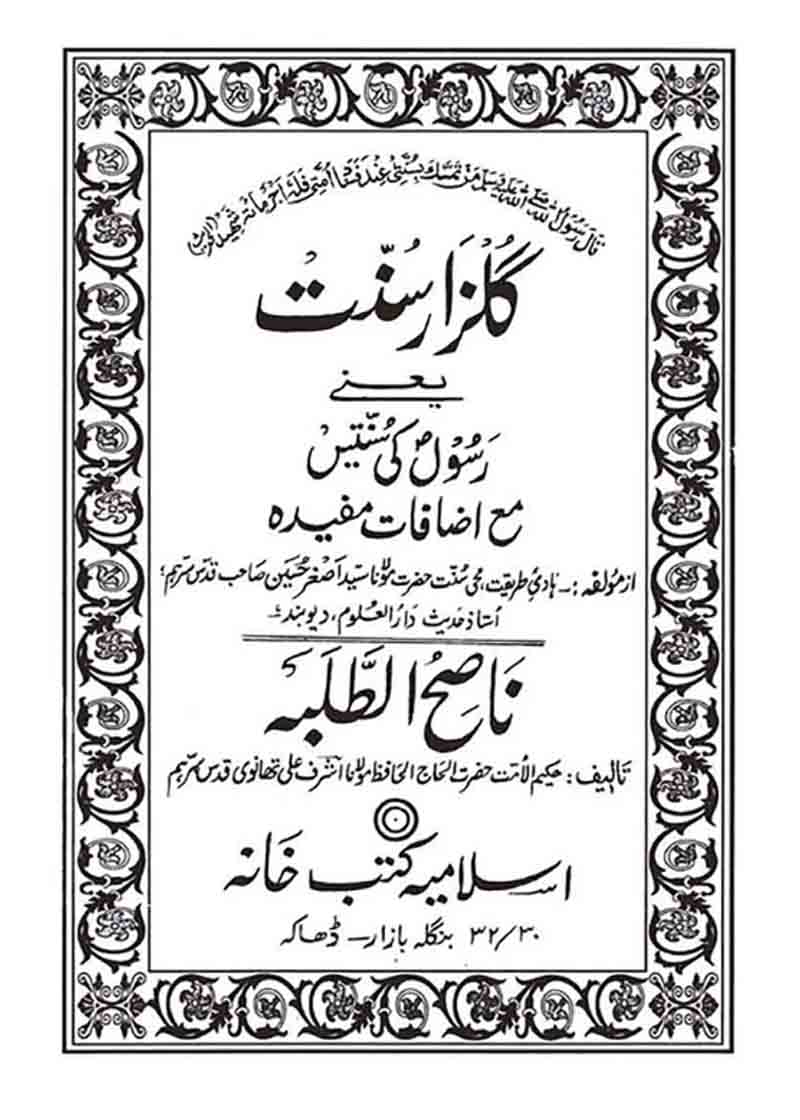 قال رسول اللہ صلی اللہ علیہ وسلم من تمسک بسنتی عند فساد امتی فلہ اجر مائۃ شہید
گلزار سُنّت
یعنی
رَسُوْلؐ کی سُنّتیں
مع اضافات مفیدہ
از مؤلفہ :۔ ہادیِ طریقت، محی سُنّت حضرت مولانا سیّد اصغر حُسین صاحب قدّس سرہم؛
اُستاذ حدیث دارُ العلوم، دیوبند
نَاصِحُ الطَّلَبَہ
تالیف : حکیم الاُمت حضرت الحاج الحافظ مولانا اشرف علی تھانوی قدس سرہم
اسلامیہ کتب خانہ
۳۰/۳۲ بنگلہ بازار۔ ڈھاکہ